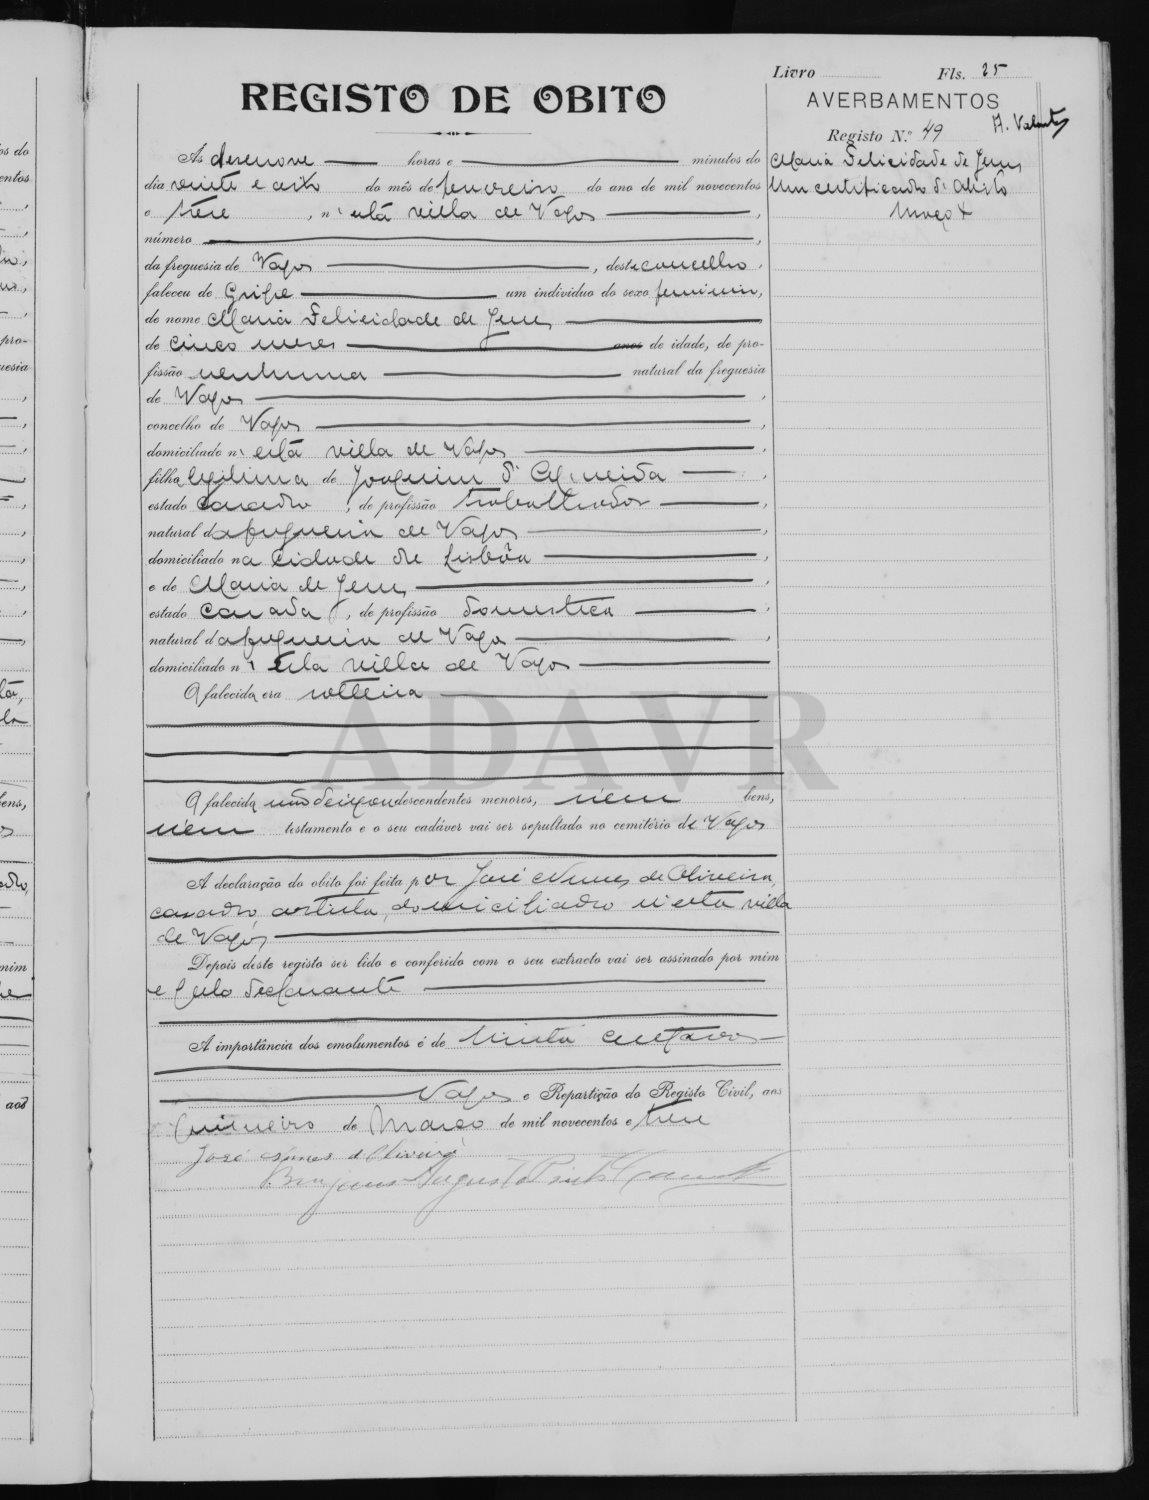 Livro Fls. 25
REGISTO DE OBITO
AVERBAMENTOS
Registo N.º 49
Maria Felicidade de Jesus
Um certificado d'obito
Março 4
Ás desenove horas e minutos do
dia vinte e oito do mês de fevereiro do ano de mil novecentos
e trese, n'esta villa de Vagos,
número,
da freguesia de Vagos, deste concelho,
faleceu de Gripe um individuo do sexo feminin,
de nome Maria Felicidade de Jesus
de cinco meses anos de idade, de pro-
fissão nenhuma natural da freguesia
de Vagos,
concelho de Vagos,
domiciliado n'esta villa de Vagos,
filha legitima de Joaquim d'Almeida,
estado casado, de profissão trabalhador,
natural da freguesia de Vagos,
domiciliado na cidade de Lisbôa,
e de Maria de Jesus,
estado casada, de profissão domestica,
natural da freguesia de Vagos,
domiciliado n'esta villa de Vagos
A falecida era solteira
ADAVR
A falecida não deixou descendentes menores, nem bens,
nem testamento e o seu cadáver vai ser sepultado no cemitério de Vagos
A declaração do obito foi feita por José Nunes de Oliveira,
casado, artista, domiciliado n'esta villa
de Vagos
Depois deste registo ser lido e conferido com o seu extracto vai ser assinado por mim
e pelo declarante
A importância dos emolumentos é de trinta centavos
Vagos e Repartição do Registo Civil, aos
primeiro de Março de mil novecentos e trese
José Nunes d'Oliveira
Augusto